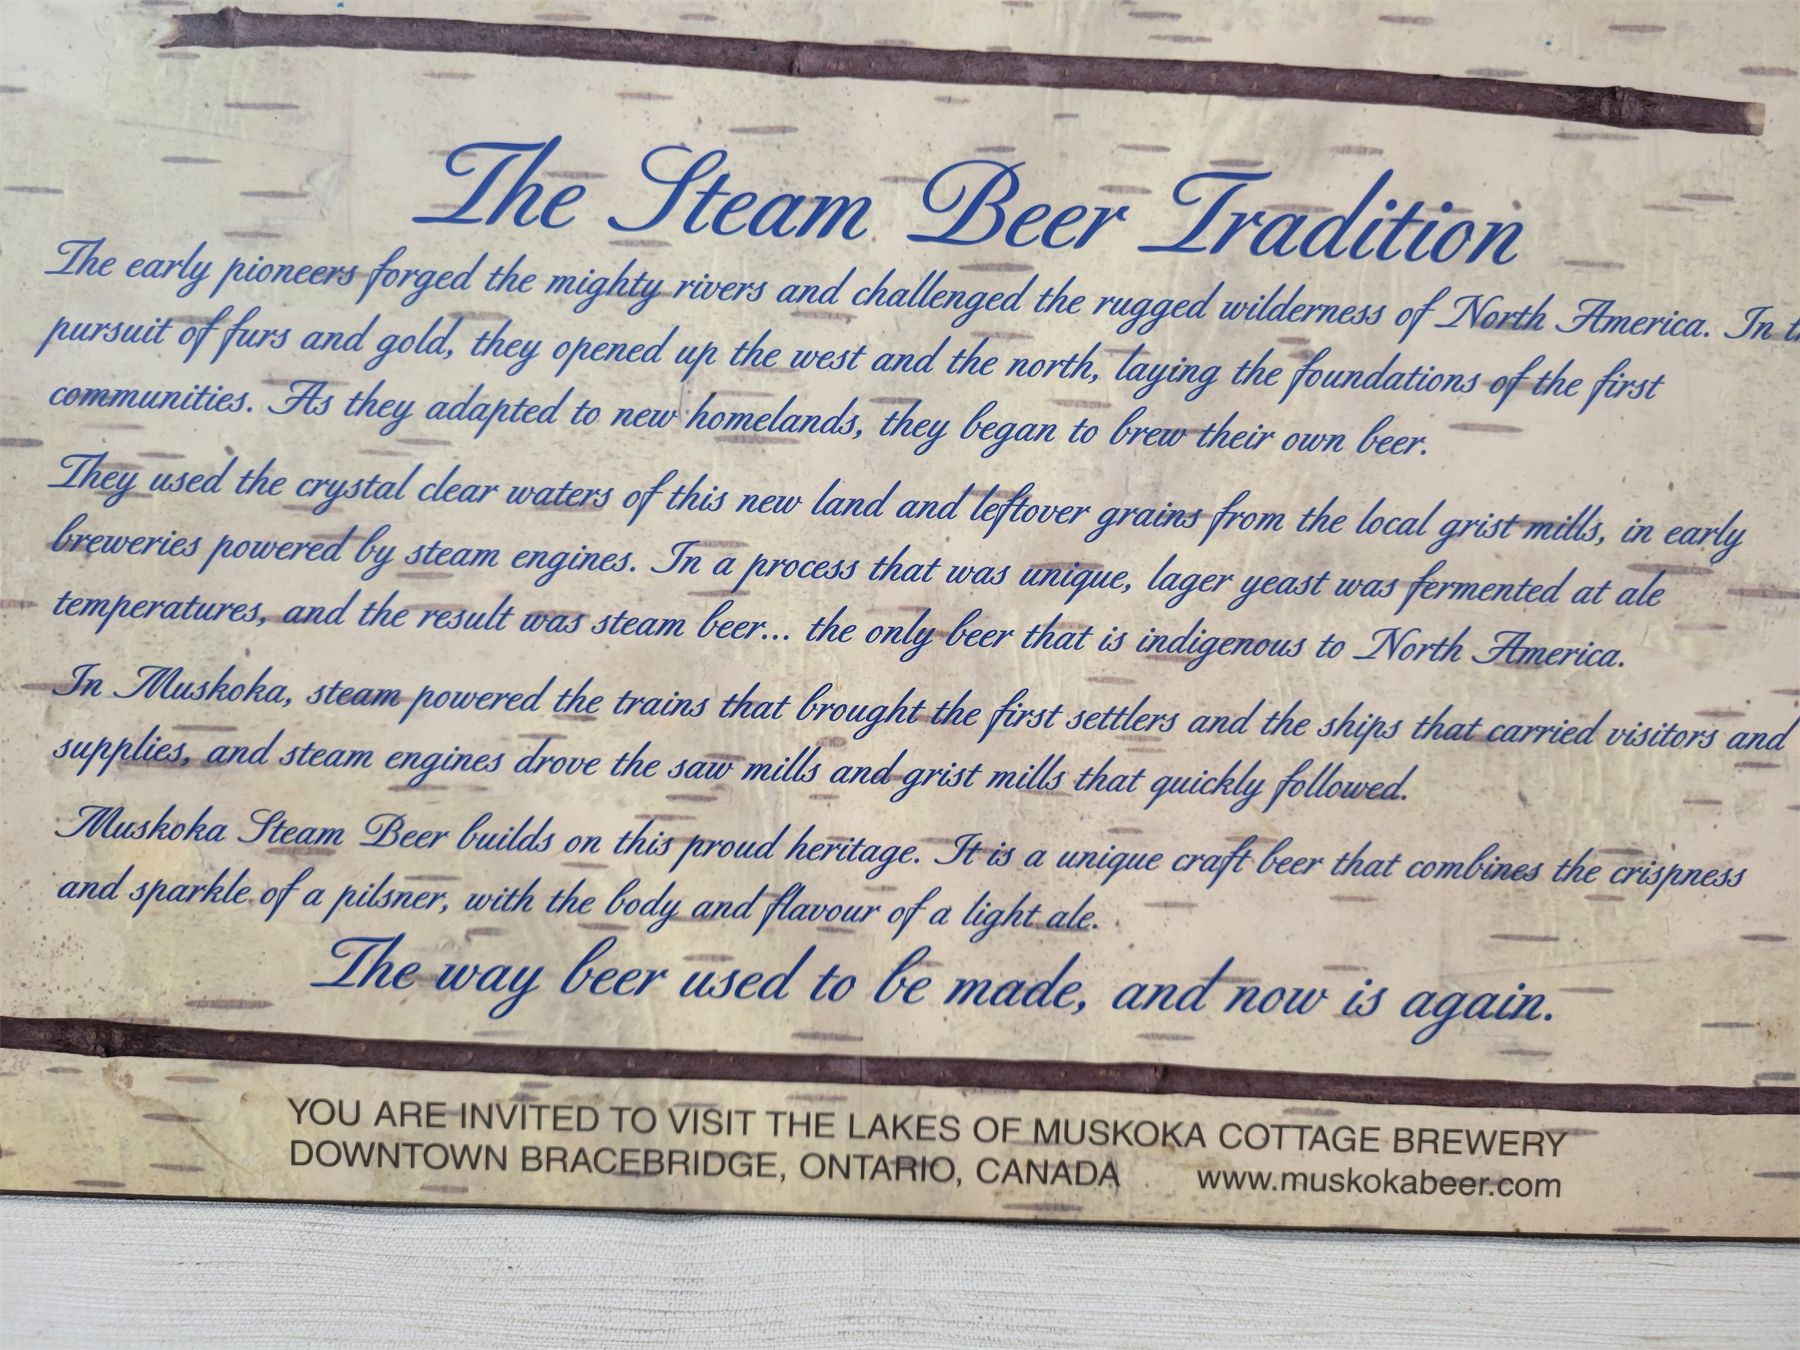 The Steam Beer Tradition
The early pioneers forged the mighty rivers and challenged the rugged wilderness of North America. In
pursuit of furs and gold, they opened up the west and the north, laying the foundations of the first
communities. As they adapted to new homelands, they began to brew their own beer.
They used the crystal clear waters of this new land and leftover grains from the local grist mills, in early
breweries powered by steam engines. In a process that was unique, lager yeast was fermented at ale
temperatures, and the result was steam beer... the only beer that is indigenous to North America.
In Muskoka, steam powered the trains that brought the first settlers and the ships that carried visitors and
supplies, and steam engines drove the saw mills and grist mills that quickly followed.
Muskoka Steam Beer builds on this proud heritage. It is a unique craft beer that combines the crispness
and sparkle of a pilsner, with the body and flavour of a light ale.
The way beer used to be made, and now is again.
YOU ARE INVITED TO VISIT THE LAKES OF MUSKOKA COTTAGE BREWERY
DOWNTOWN BRACEBRIDGE, ONTARIO, CANADA www.muskokabeer.com